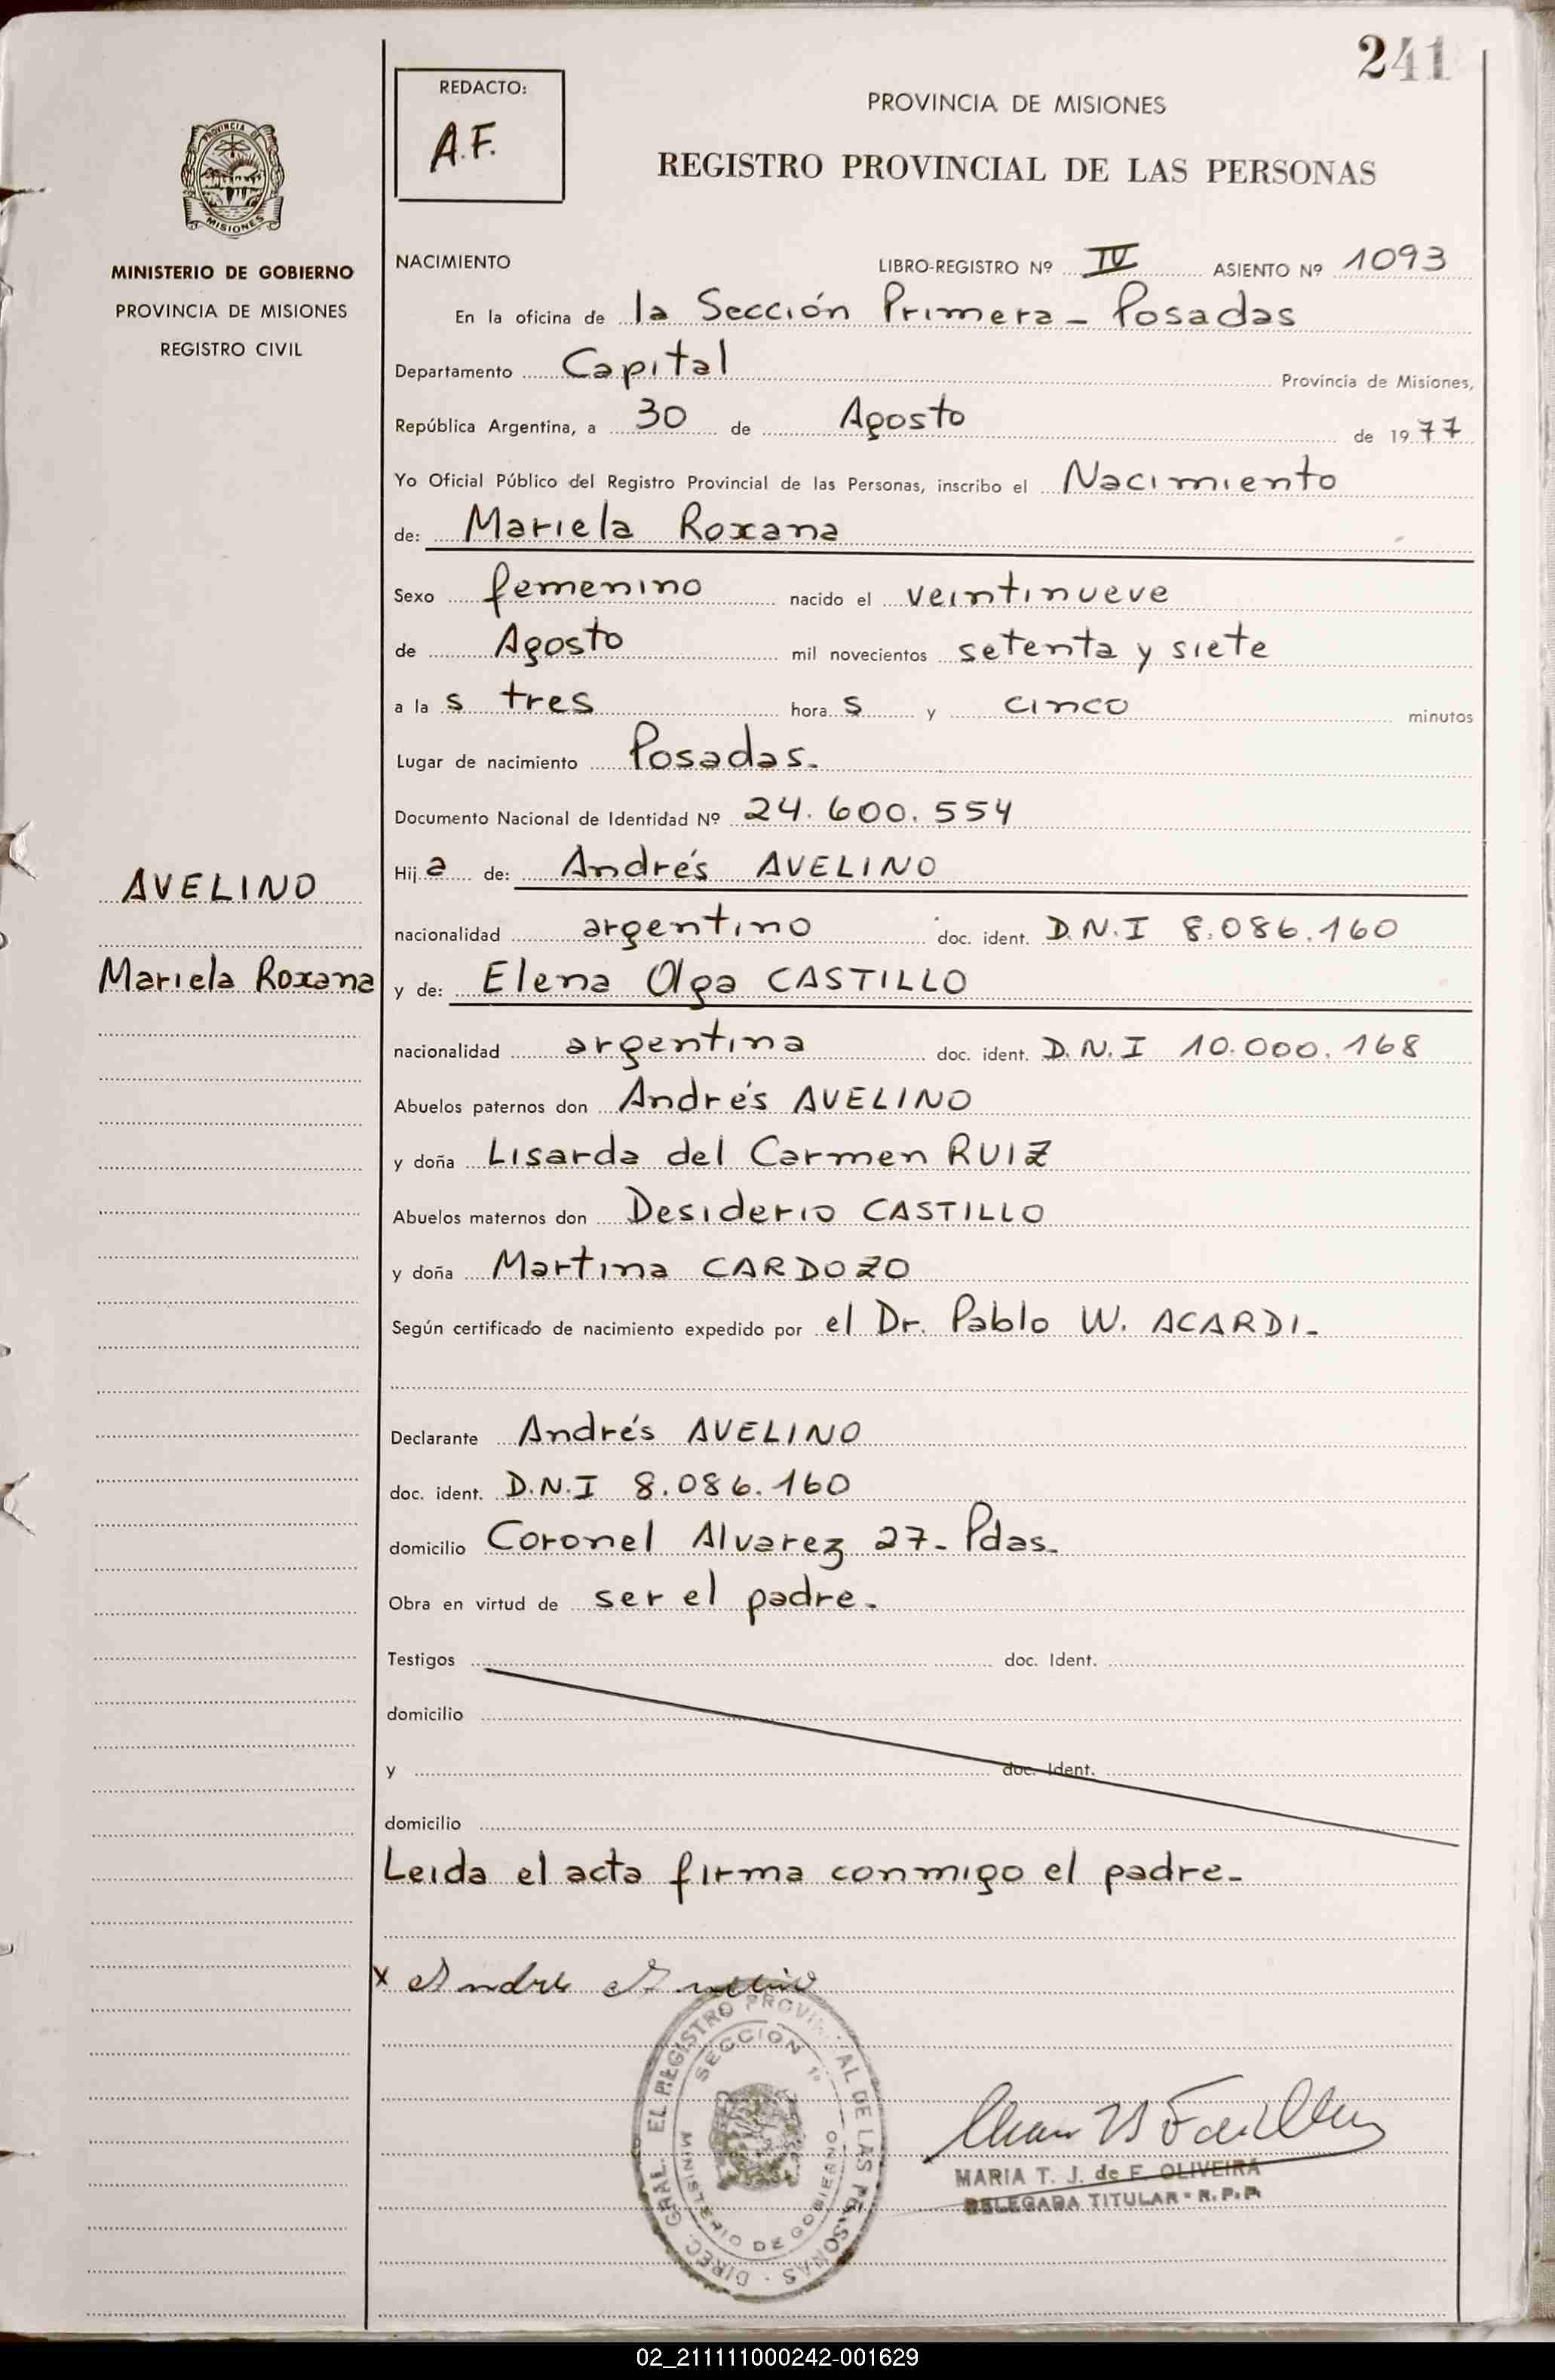 241
REDACTO:
A.F.
PROVINCIA DE MISIONES
REGISTRO PROVINCIAL DE LAS PERSONAS
PROVINCIA DE
MISIONES
MINISTERIO DE GOBIERNO
PROVINCIA DE MISIONES
REGISTRO CIVIL
NACIMIENTO LIBRO-REGISTRO Nº IV ASIENTO Nº 1093
En la oficina de la Sección Primera - Posadas
Departamento Capital Provincia de Misiones,
República Argentina, a 30 de Agosto de 1977
Yo Oficial Público del Registro Provincial de las Personas, inscribo el Nacimiento
de: Mariela Roxana
Sexo femenino nacido el veintinueve
de Agosto mil novecientos setenta y siete
a la s tres hora s y cinco minutos
Lugar de nacimiento Posadas.
Documento Nacional de Identidad Nº 24.600.554
AVELINO
Mariela Roxana
Hij a de: Andrés AVELINO
nacionalidad argentino doc. ident. D.N.I 8.086.160
y de: Elena Olga CASTILLO
nacionalidad argentina doc. ident. D.N.I 10.000.168
Abuelos paternos don Andrés AVELINO
y doña Lisarda del Carmen RUIZ
Abuelos maternos don Desiderio CASTILLO
y doña Martina CARDOZO
Según certificado de nacimiento expedido por el Dr. Pablo W. ACARDI-
Declarante Andrés AVELINO
doc. ident. D.N.I 8.086.160
domicilio Coronel Alvarez 27- Pdas.
Obra en virtud de ser el padre.
Testigos doc. Ident.
domicilio
y doc. Ident.
domicilio
Leida el acta firma conmigo el padre-
x Andrés Avelino
DIREC. GRAL. EL REGISTRO PROVINCIAL DE LAS PERSONAS
SECCION 1º
MINISTERIO DE GOBIERNO
MARIA T. J. de F. OLIVEIRA
DELEGADA TITULAR - R.P.P.
02_211111000242-001629